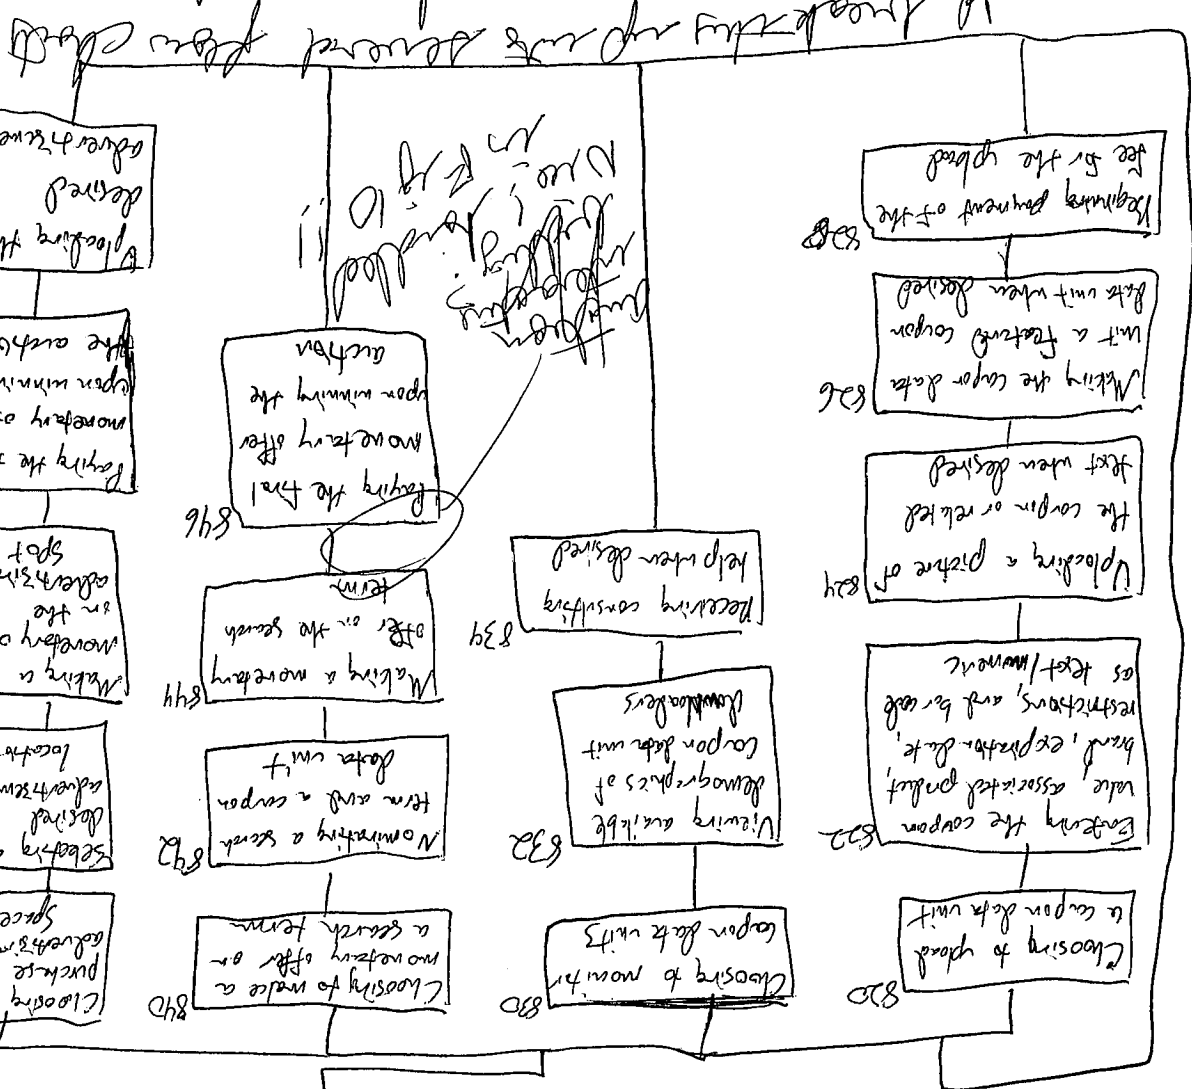 820
Choosing to upload
a coupon data unit
822
Entering the coupon
value, associated product,
brand, expiration date,
restrictions, and bar code
as text/numeric
824
Uploading a picture of
the coupon or related
text when desired
826
Making the coupon data
unit a featured coupon
data unit when desired
828
Beginning payment of the
fee for the upload
830
Choosing to monitor
coupon data units
832
Viewing available
demographics of
coupon data unit
downloaders
834
Receiving consulting
help when desired
840
Choosing to make a
monetary offer on
a search term
842
Nominating a search
term and a coupon
data unit
844
Making a monetary
offer on the search
term
846
Paying the final
monetary offer
upon winning the
auction
Choosing
purchase
advertisin
space
Selecting
desired
advertisem
location
Making a
monetary o
on the
advertisin
spot
Paying the
monetary o
upon winni
the auctio
Uploading th
desired
advertiseme
in Fig
10
break this up into several flow charts